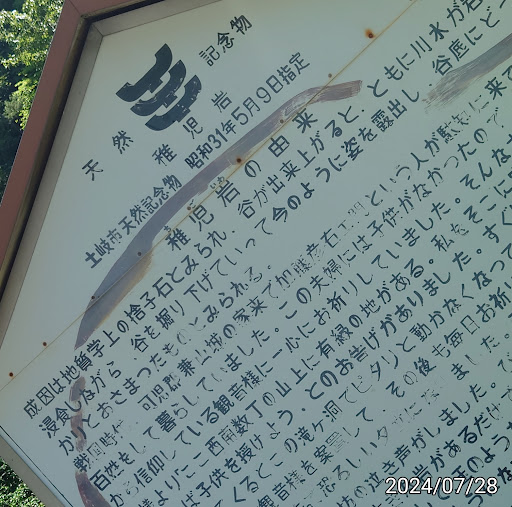 天然
記念物
稚児岩
土岐市天然記念物 昭和31年5月9日指定
稚児岩の由来
成因は地質学上の捨子石とみられ、谷が出来上がると、ともに川水が岩
浸食しながら、谷を掘り下げていって今のように姿を露出し、谷底にどっ
かとおさまったものとみられる。
戦国時代、可児郡兼山城の家来で加藤彦右エ門という人が駄知に来て
百姓をして暮らしていました。この夫婦には子供がなかったので
から信仰している観音様に一心にお祈りしていました。そんな
様よりここ西南数丁の山上に有縁の地がある。私をそこに
ば子供を授けよう、とのお告げがありました。すぐ
てくるとこの滝ケ洞でピタリと動かなくなって
観音様を安置して、その後も毎日お祈り
恐ろしい夕
坊の泣き声がしました。
岩があるだけ
のような
2024/07/28